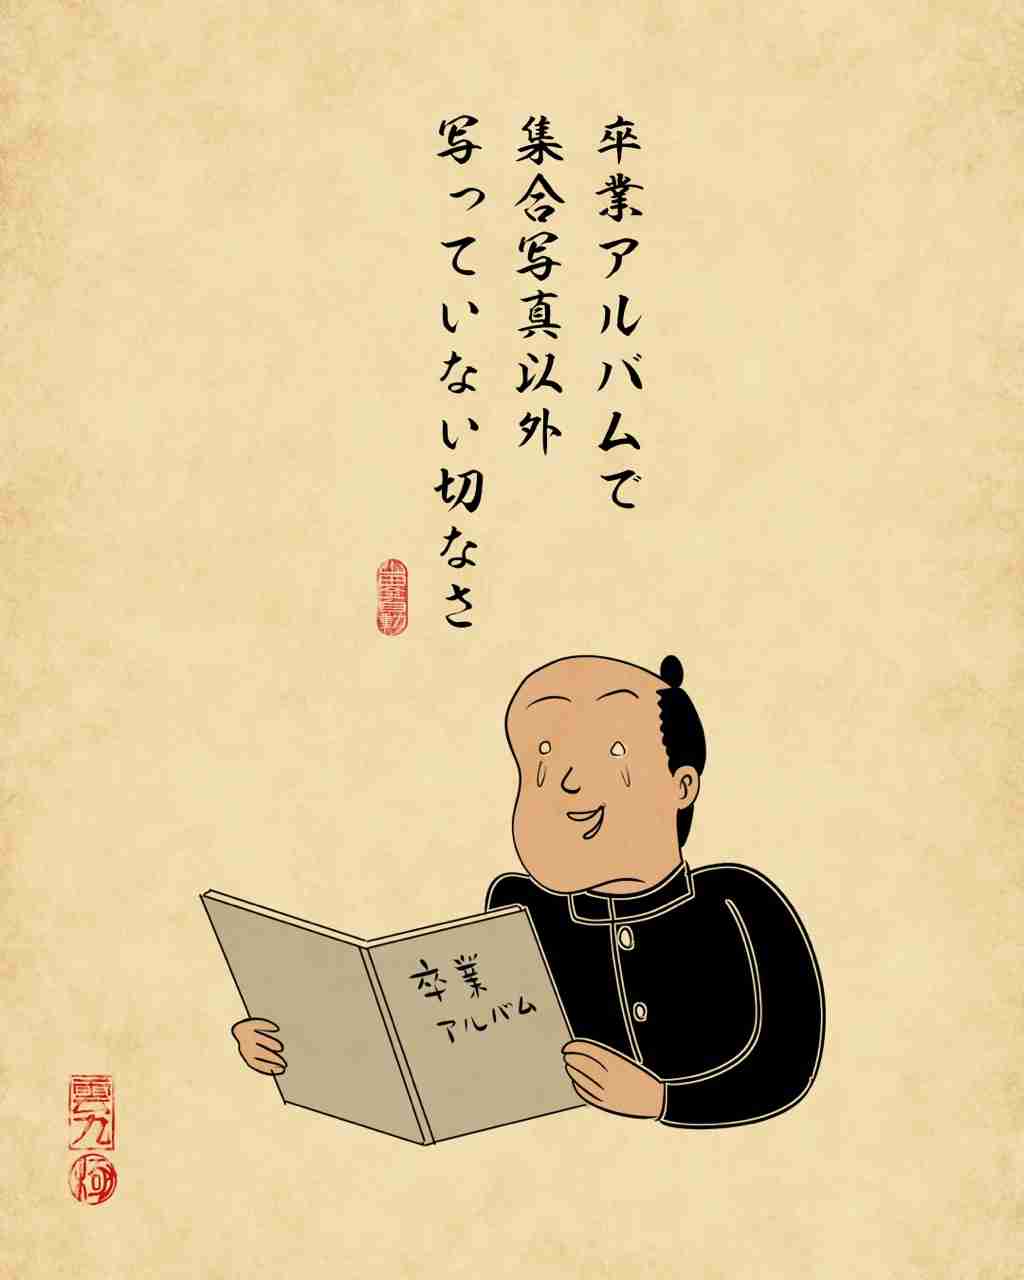 卒業アルバムで
集合写真以外
写っていない切なさ
卒業
アルバム